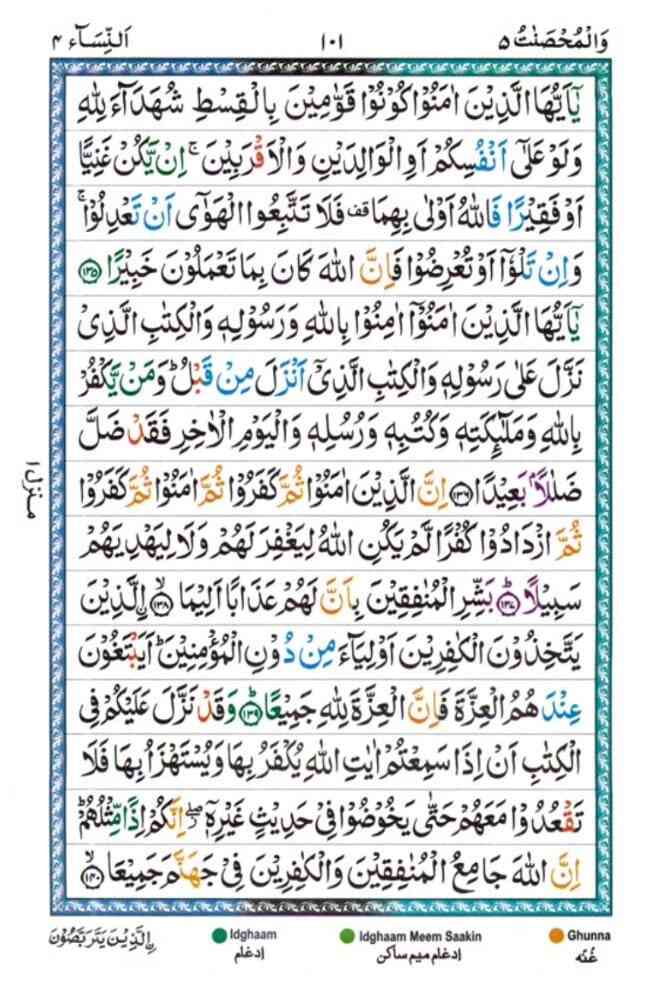 وَالْمُحْصَنٰتُ ۵
١٠١
اَلنِّسَآء ۴
يٰۤاَيُّهَا الَّذِيْنَ اٰمَنُوْا كُوْنُوْا قَوّٰمِيْنَ بِالْقِسْطِ شُهَدَآءَ لِلّٰهِ
وَلَوْ عَلٰۤى اَنْفُسِكُمْ اَوِ الْوَالِدَيْنِ وَالْاَقْرَبِيْنَ ۚ اِنْ يَّكُنْ غَنِيًّا
اَوْ فَقِيْرًا فَاللّٰهُ اَوْلٰى بِهِمَا ۫ فَلَا تَتَّبِعُوا الْهَوٰۤى اَنْ تَعْدِلُوْا ۚ
وَاِنْ تَلْوٗۤا اَوْ تُعْرِضُوْا فَاِنَّ اللّٰهَ كَانَ بِمَا تَعْمَلُوْنَ خَبِيْرًا ﴿۱۳۵﴾
يٰۤاَيُّهَا الَّذِيْنَ اٰمَنُوْۤا اٰمِنُوْا بِاللّٰهِ وَرَسُوْلِهٖ وَالْكِتٰبِ الَّذِيْ
نَزَّلَ عَلٰى رَسُوْلِهٖ وَالْكِتٰبِ الَّذِيْۤ اَنْزَلَ مِنْ قَبْلُ ؕ وَمَنْ يَّكْفُرْ
بِاللّٰهِ وَمَلٰٓئِكَتِهٖ وَكُتُبِهٖ وَرُسُلِهٖ وَالْيَوْمِ الْاٰخِرِ فَقَدْ ضَلَّ
ضَلٰلًاۢ بَعِيْدًا ﴿۱۳۶﴾ اِنَّ الَّذِيْنَ اٰمَنُوْا ثُمَّ كَفَرُوْا ثُمَّ اٰمَنُوْا ثُمَّ كَفَرُوْا
ثُمَّ ازْدَادُوْا كُفْرًا لَّمْ يَكُنِ اللّٰهُ لِيَغْفِرَ لَهُمْ وَلَا لِيَهْدِيَهُمْ
سَبِيْلًا ؕ﴿۱۳۷﴾ بَشِّرِ الْمُنٰفِقِيْنَ بِاَنَّ لَهُمْ عَذَابًا اَلِيْمَا ۙ﴿۱۳۸﴾ اۨلَّذِيْنَ
يَتَّخِذُوْنَ الْكٰفِرِيْنَ اَوْلِيَآءَ مِنْ دُوْنِ الْمُؤْمِنِيْنَ ؕ اَيَبْتَغُوْنَ
عِنْدَهُمُ الْعِزَّةَ فَاِنَّ الْعِزَّةَ لِلّٰهِ جَمِيْعًا ؕ﴿۱۳۹﴾ وَقَدْ نَزَّلَ عَلَيْكُمْ فِي
الْكِتٰبِ اَنْ اِذَا سَمِعْتُمْ اٰيٰتِ اللّٰهِ يُكْفَرُ بِهَا وَيُسْتَهْزَاُ بِهَا فَلَا
تَقْعُدُوْا مَعَهُمْ حَتّٰى يَخُوْضُوْا فِيْ حَدِيْثٍ غَيْرِهٖۤ ۖ اِنَّكُمْ اِذًا مِّثْلُهُمْ ؕ
اِنَّ اللّٰهَ جَامِعُ الْمُنٰفِقِيْنَ وَالْكٰفِرِيْنَ فِيْ جَهَنَّمَ جَمِيْعَا ۙ﴿۱۴۰﴾
منزل ۱
اۨلَّذِيْنَ يَتَرَبَّصُوْنَ
Idghaam
ادغام
Idghaam Meem Saakin
ادغام میم ساکن
Ghunna
غُنّه